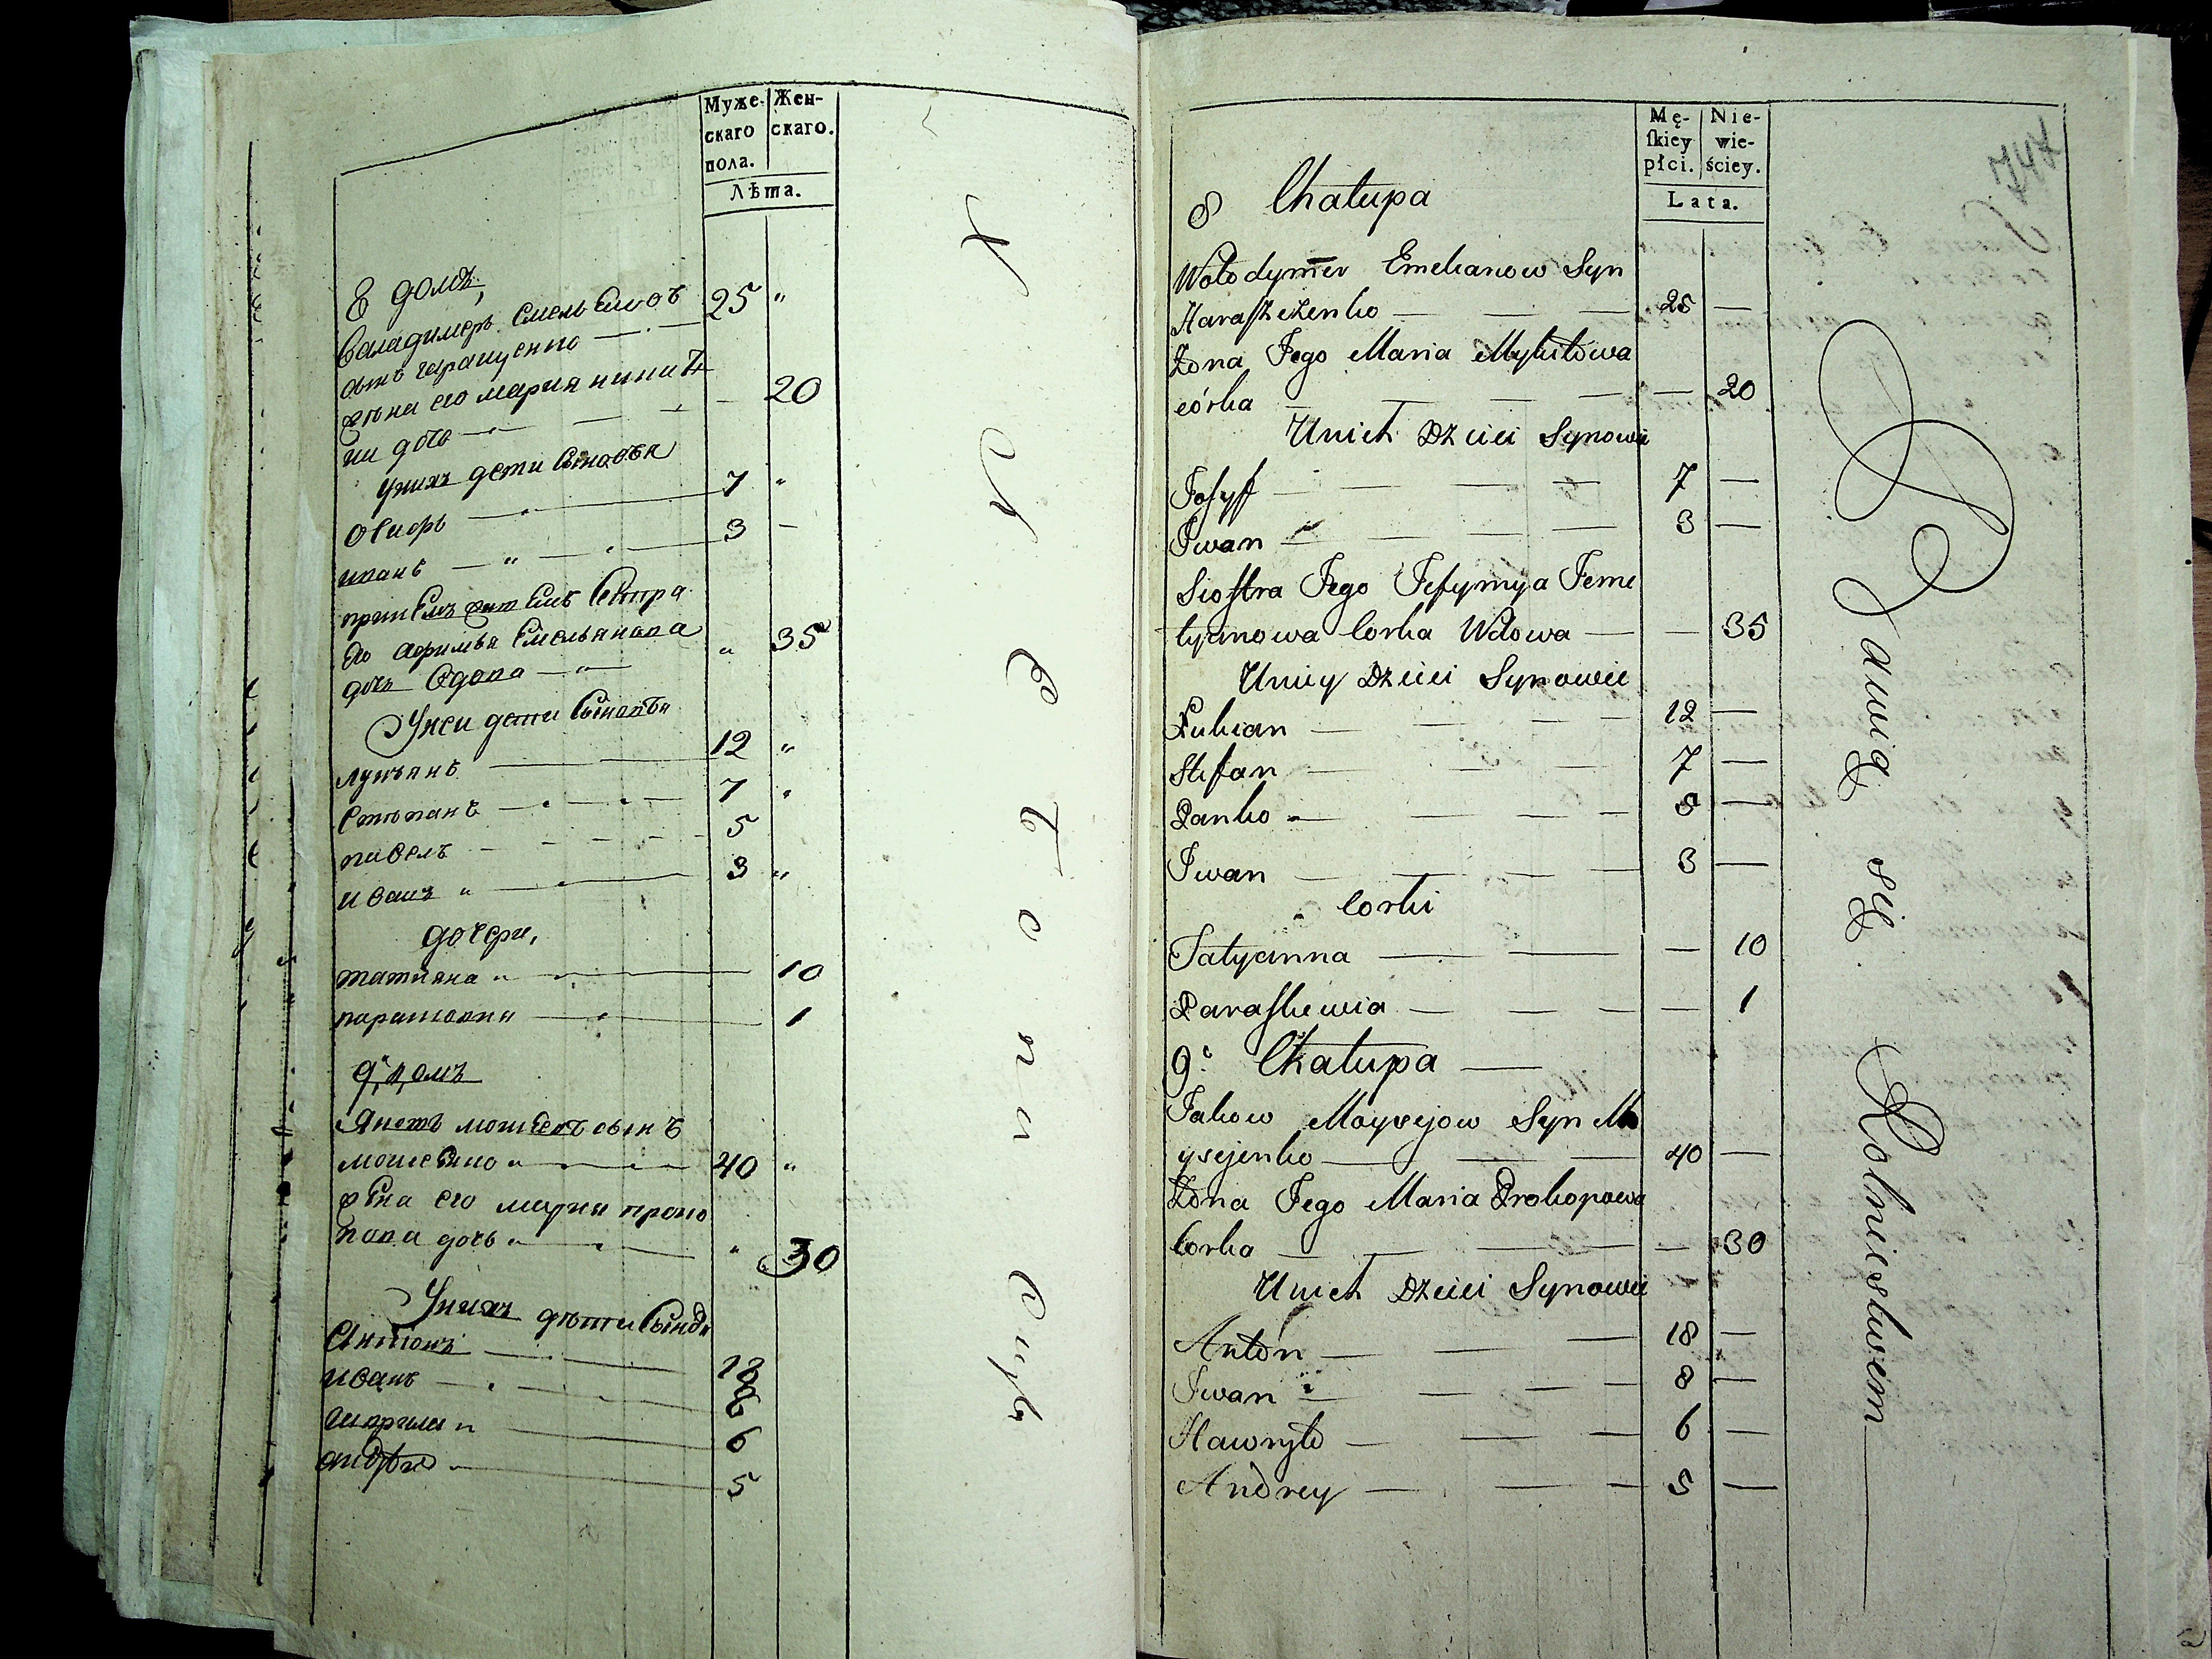 Муже-
скаго
пола.
Жен-
скаго.
Лѣта.
8 домъ,
Валадимеръ Емельѣновъ
сынъ гаращенко 25 "
жѣна его мария никит
ни дочь 20
унихъ дети сыновъя
осифъ 7 "
иванъ 3 —
его афимья Емельянова
дочь вдова " 35
Унеи дети сыновъя
лукъянъ 12 "
степанъ 7 "
павелъ 5
иванъ 3 "
дочери,
татияна 10
парасковия 1
9, домъ
моисеенко 40 "
жена его мария проко
пова дочь " 30
Унихъ дѣти сынов
Антонъ 18
иванъ 8
гаврила 6
андреи 5
747
Mę-
ſkiey
płci.
Nie-
wie-
ściey.
Lata.
8 Chałupa
Wołodymer Emelianow Syn
Haraszczenko 25 —
Żona Jego Maria Mykitowa
córka — 20
Unich Dzieci Synowie
Josyf 7 —
Iwan 3 —
Siostra Jego Jefymya Jeme
lyanowa Corka Wdowa — 35
Unicy Dzieci Synowie
Lukian 12 —
Stefan 7 —
Panko 5 —
Iwan 3 —
Corki
Tatyanna — 10
Paraskewia — 1
9. Chałupa —
Jakow Moysejow Syn Mo
ysejenko 40 —
Żona Jego Maria Prokopowa
Corka — 30
Unich Dzieci Synowie
Anton 18 —
Iwan 8 —
Hawryło 6 —
Andrey 5 —
Bawią się Rolnictwem